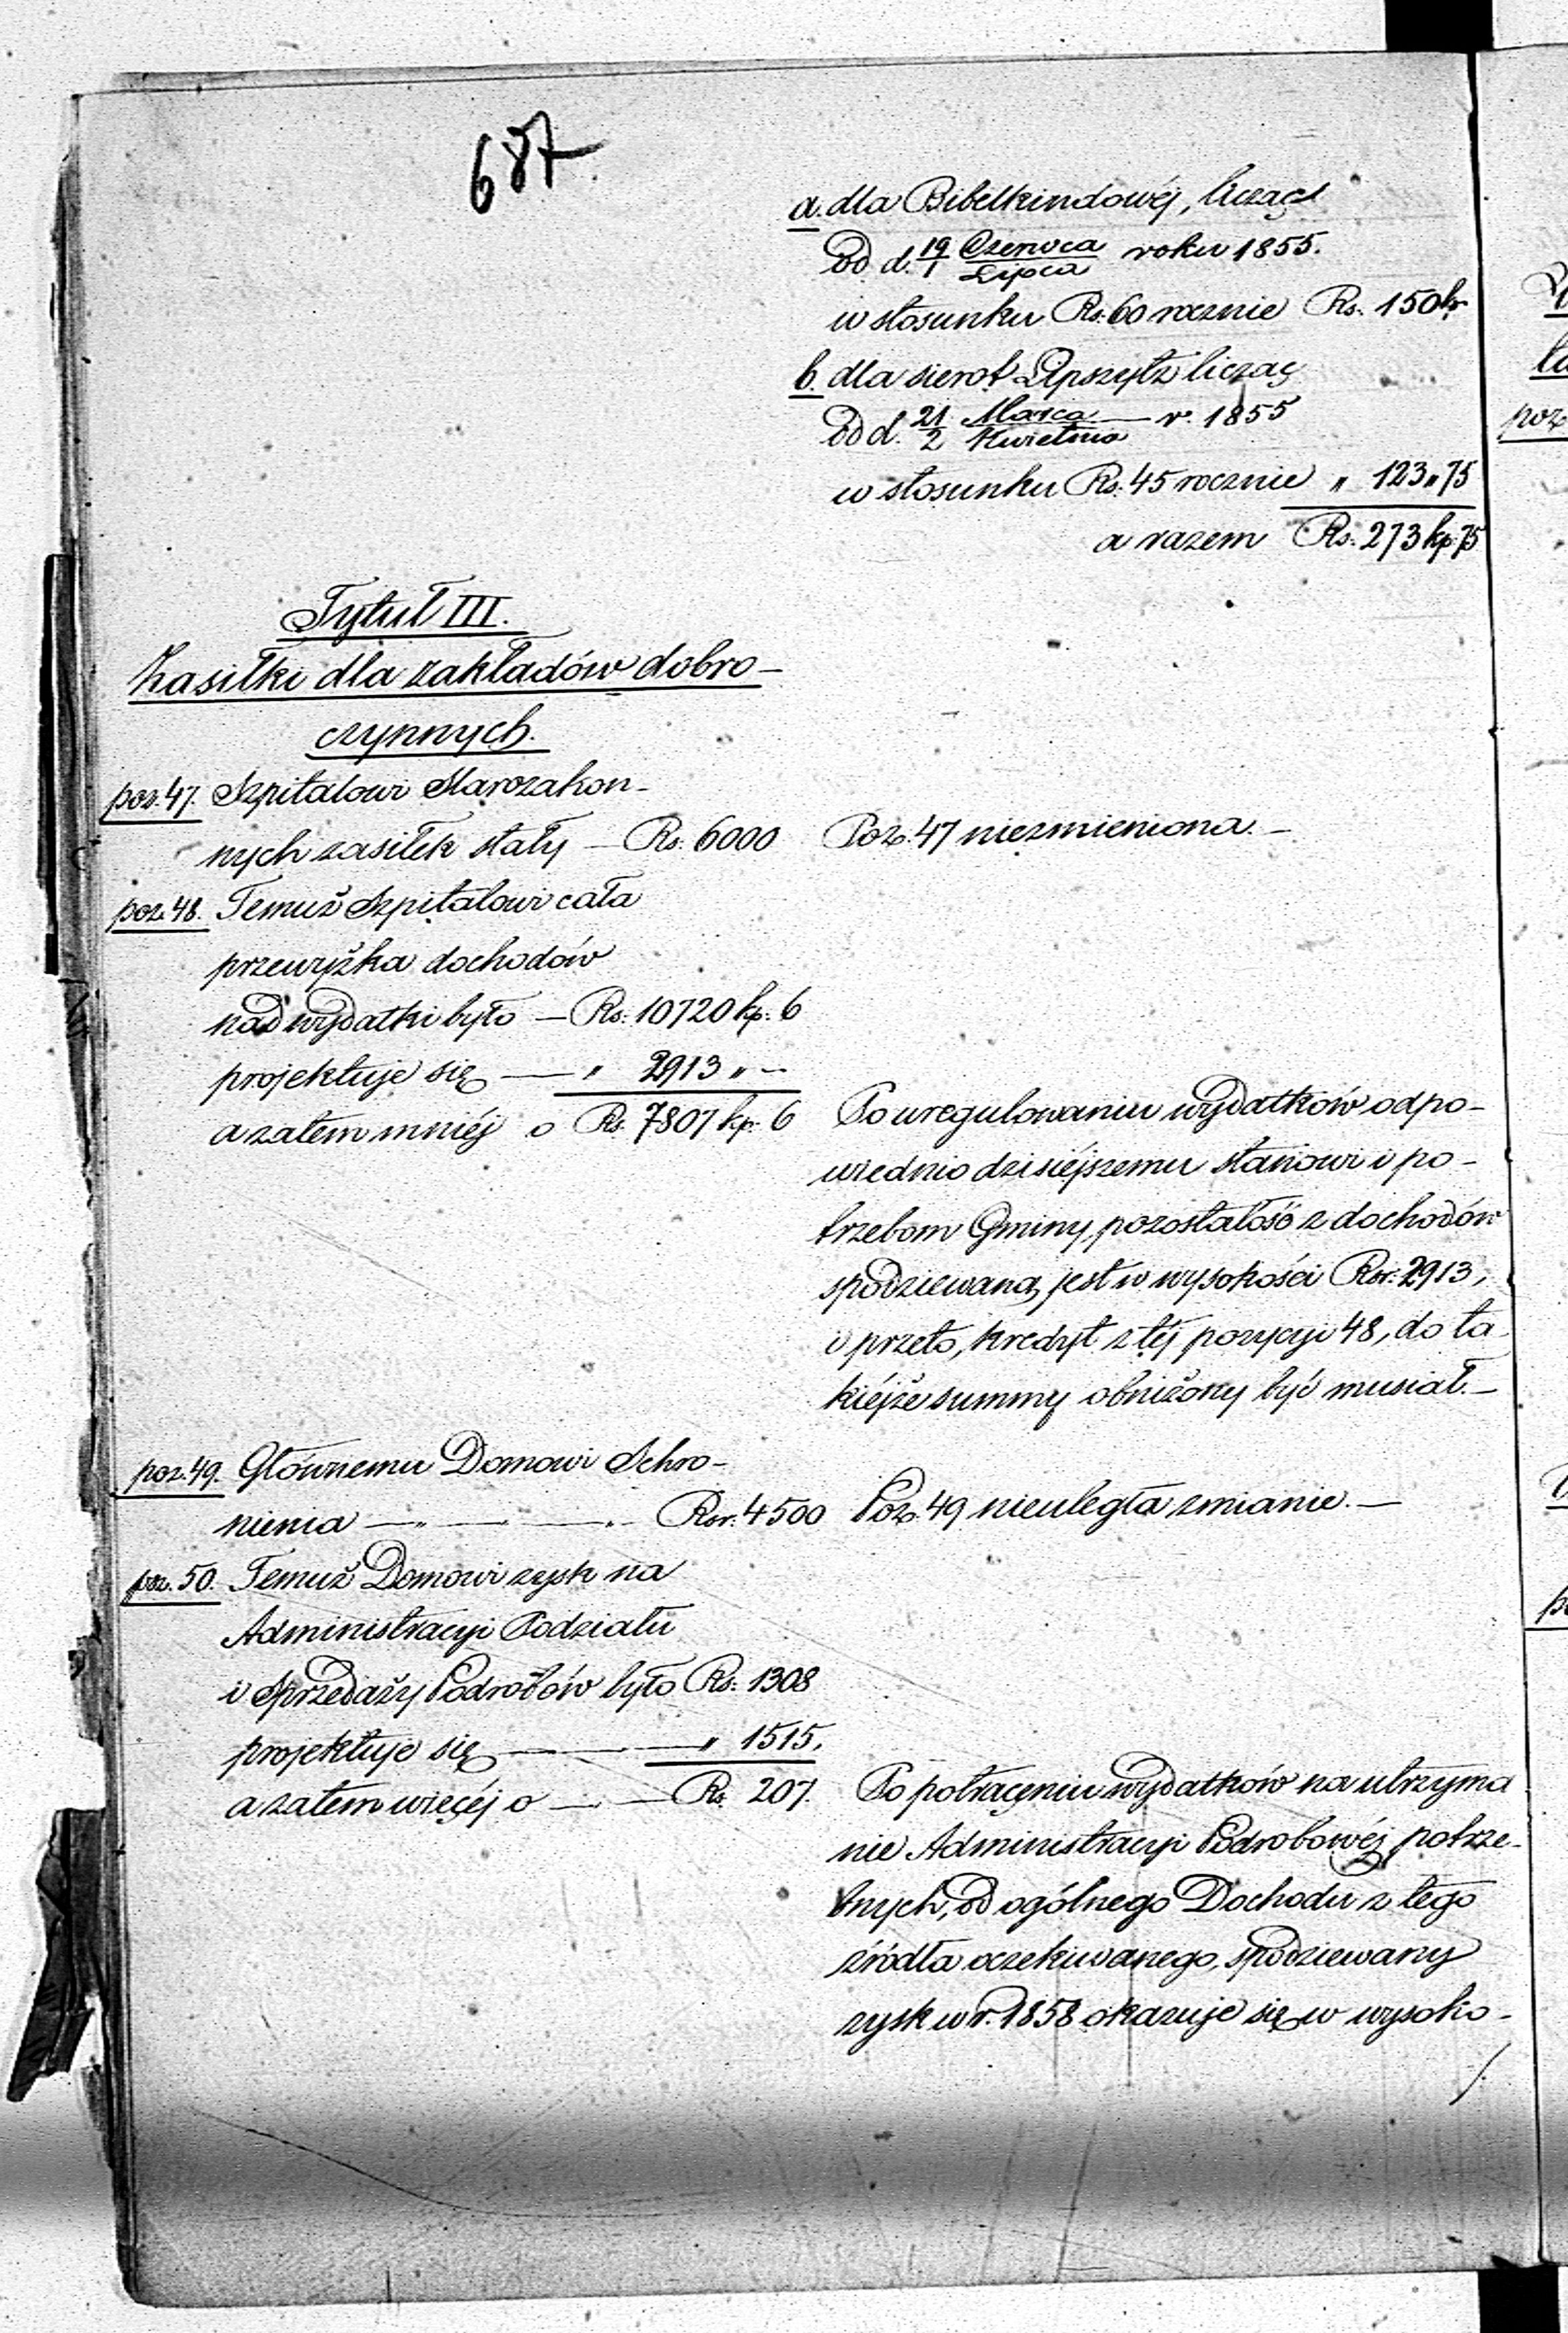 687.
a. dla Bibelkindowéj, licząc
od d. 19/1 Czerwca/Lipca roku 1855.
w stosunku Rs. 60 rocznie Rs. 150 k.
b. dla sierot Lipszytz licząc
od d. 21/2 Marca/Kwietnia r. 1855
w stosunku Rs. 45 rocznie „ 123 „ 75
a razem Rs. 273 kp. 75
Tytuł III.
Zasiłki dla zakładów dobro-
czynnych.
poz. 47. Szpitalowi Starozakon-
nych zasiłek stały — Rs. 6000
Poz. 47 niezmieniona. —
poz. 48. Temuż Szpitalowi cała
przewyżka dochodów
nad wydatki było — Rs. 10720 kp. 6
projektuje się — „ 2913 „ —
a zatem mniéj o Rs. 7807 kp. 6
Po uregulowaniu wydatków odpo-
wiednio dzisiéjszemu stanowi i po-
trzebom Gminy, pozostałość z dochodów
spodziewaną jest w wysokości Rsr. 2913,
i przeto, kredyt z téj pozycyi 48, do ta
kiéjże summy obniżony być musiał. —
poz. 49. Głównemu Domowi Schro-
nienia — „ — „ Rsr. 4500
Poz. 49 nieuległa zmianie. —
poz. 50. Temuż Domowi zysk na
Administracyi Podziału
i Sprzedaży Podrobów było Rs. 1308
projektuje się — „ 1515.
a zatem więcéj o — Rs. 207.
Po potrąceniu wydatków na utrzyma
nie Administracyi Podrobowéj potrze-
bnych, od ogólnego Dochodu z tego
źródła oczekiwanego, spodziewany
zysk w r. 1858 okazuje się w wysoko-